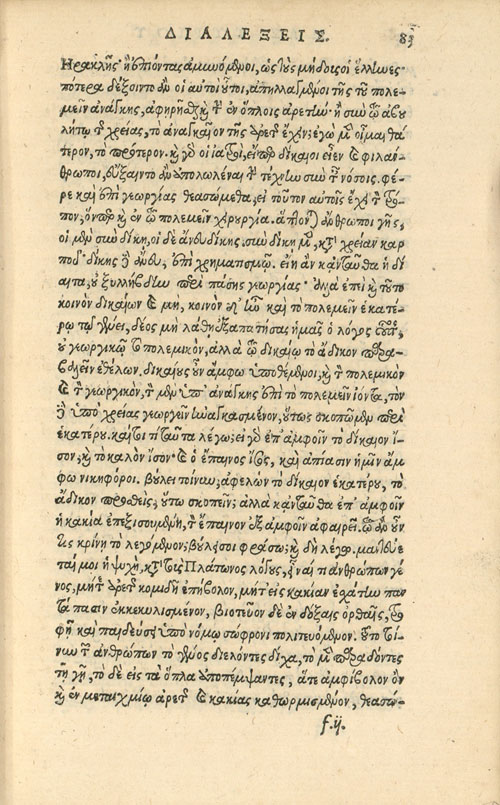 ΔΙΑΛΕΞΕΙΣ. 83
Ηρακλῆς ἢ ἐπιόντας ἀμυνόμενοι, ὡς τοὺς μήδους οἱ ἕλληνες·
πότερα δέξοιντο ἂν οἱ αὐτοὶ οὗτοι, ἀπηλλαγμένοι τῆς τοῦ πολε-
μεῖν ἀνάγκης, ἀφῃρῆσθαι καὶ τὴν ἐν ὅπλοις ἀρετήν· ἢ σὺν τῷ ἀβου
λήτῳ τῆς χρείας, τὸ ἀναγκαῖον τῆς ἀρετῆς ἔχειν; ἐγὼ μὲν οἶμαι θά
τερον, τὸ πρότερον. καὶ γὰρ οἱ ἰατροὶ, εἴπερ δίκαιοι εἶεν καὶ φιλάν-
θρωποι, εὔξαιντο ἂν ἀπολωλέναι τὴν τέχνην σὺν ταῖς νόσοις. φέ-
ρε καὶ ἐπὶ γεωργίας θεασώμεθα, εἰ τοῦτον αὐτοῖς ἔχει τὸν τρό-
πον, ὅνπερ καὶ ἐν τῷ πολεμεῖν χειρουργία. ἅπτονται ἄνθρωποι γῆς,
οἱ μὲν σὺν δίκῃ, οἱ δὲ ἄνευ δίκης. σὺν δίκῃ μὲν, κατὰ χρείαν καρ
ποῦ· δίκης δὲ ἄνευ, ἐπὶ χρηματισμῷ. εἴη ἂν κἀνταῦθα ἡ δί
αιτα, οὐ ξυλλήβδην περὶ πάσης γεωργίας· ἀλλὰ ἐπεὶ καὶ τοῦτο
κοινὸν δικαίων καὶ μὴ, κοινὸν δ' ἦν καὶ τὸ πολεμεῖν ἑκατέ-
ρῳ τῷ γένει, δέος μὴ λάθῃ ἐξαπατήσας ἡμᾶς ὁ λόγος οὗτος,
οὐ γεωργικῷ πολεμικὸν, ἀλλὰ τῷ δικαίῳ τὸ ἄδικον παρα-
βαλεῖν ἐθέλων. δικαίους οὖν ἄμφω ὑποθέμενοι, καὶ τὸν πολεμικὸν
καὶ τὸν γεωργικὸν, τὸν μὲν ὑπ' ἀνάγκης ἐπὶ τὸ πολεμεῖν ἰόντα, τὸν
δὲ ὑπὸ χρείας γεωργεῖν ἠναγκασμένον, οὕτως σκοπῶμεν περὶ
ἑκατέρου. καίτοι τί ταῦτα λέγω; εἰ γὰρ ἐπ' ἀμφοῖν τὸ δίκαιον ἴ-
σον, καὶ τὸ καλὸν ἴσον· καὶ ὁ ἔπαινος ἴσος, καὶ ἀπίασιν ἡμῖν ἄμ
φω νικηφόροι. βούλει τοίνυν; ἀφελὼν τὸ δίκαιον ἑκατέρου, τὸ
ἄδικον προσθείς; οὕτω σκοπεῖν; ἀλλὰ κἀνταῦθα ἐπ' ἀμφοῖν
ἡ κακία ἐπεξισουμένη, τὸν ἔπαινον ἐξ ἀμφοῖν ἀφαιρεῖ. τῷ ἂν οὖν
τις κρίνῃ τὸ λεγόμενον; βούλει σοι φράσω; καὶ δὴ λέγω. μαντεύε
ταί μοι ἡ ψυχὴ, κατὰ τοὺς Πλάτωνος λόγους, εἶναί τι ἀνθρώπων γέ
νος, μήτε ἀρετῆς κομιδῇ ἐπήβολον, μήτε εἰς κακίαν ἐσχάτην παν
τάπασιν ἐκκεκυλισμένον, βιοτεῦον δὲ ἐν δόξαις ὀρθαῖς, τρο
φῇ καὶ παιδεύσει ὑπὸ νόμῳ σώφρονι πολιτευόμενον. τοῦτο τοί-
νυν τὸ ἀνθρώπων τὸ γένος διελόντες δίχα, τὸ μὲν παραδόντες
τῇ γῇ, τὸ δὲ εἰς τὰ ὅπλα ἀποπέμψαντες, ἅτε ἀμφίβολον ὂν
καὶ ἐν μεταιχμίῳ ἀρετῆς καὶ κακίας καθωρμισμένον, θεασώ-
f.ij.